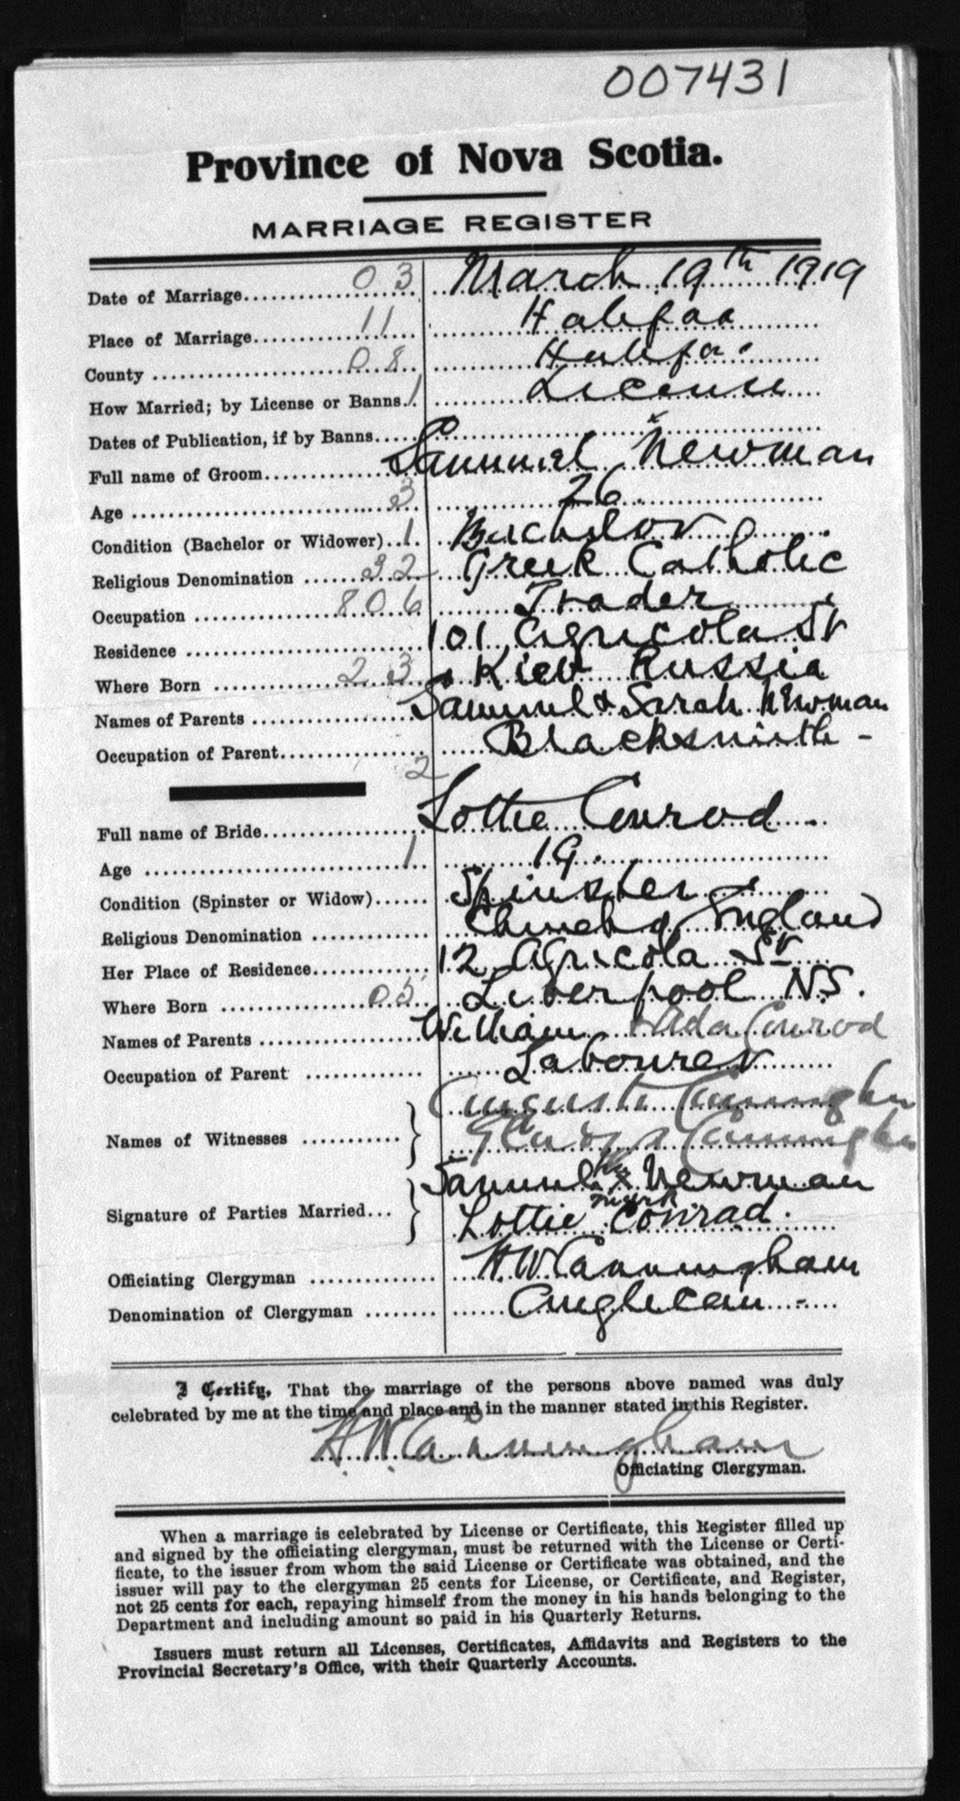 007431
Province of Nova Scotia.
MARRIAGE REGISTER
Date of Marriage 03 March 19th 1919
Place of Marriage 11 Halifax
County 08 Halifax
How Married; by License or Banns 1 License
Dates of Publication, if by Banns
Full name of Groom Sammuel Newman
Age 3 26
Condition (Bachelor or Widower) 1 Bachelor
Religious Denomination 32 Greek Catholic
Occupation 806 Trader
Residence 101 Agricola St
Where Born 23 Kiev Russia
Names of Parents Samuel & Sarah Newman
Occupation of Parent Blacksmith -
2
Full name of Bride Lottie Conrod.
Age 1 19.
Condition (Spinster or Widow) Spinster
Religious Denomination Church of England
Her Place of Residence 12 Agricola St
Where Born 05 Liverpool NS.
Names of Parents William & Ada Conrod
Occupation of Parent Labourer
Names of Witnesses Cunningham
Gladys Cunningham
Signature of Parties Married Samuel his x Newman
mark
Lottie Conrad.
Officiating Clergyman H W Cunningham
Denomination of Clergyman Anglican -
I Certify, That the marriage of the persons above named was duly
celebrated by me at the time and place and in the manner stated in this Register.
H. W. Cunningham
Officiating Clergyman.
When a marriage is celebrated by License or Certificate, this Register filled up
and signed by the officiating clergyman, must be returned with the License or Certi-
ficate, to the issuer from whom the said License or Certificate was obtained, and the
issuer will pay to the clergyman 25 cents for License, or Certificate, and Register,
not 25 cents for each, repaying himself from the money in his hands belonging to the
Department and including amount so paid in his Quarterly Returns.
Issuers must return all Licenses, Certificates, Affidavits and Registers to the
Provincial Secretary's Office, with their Quarterly Accounts.